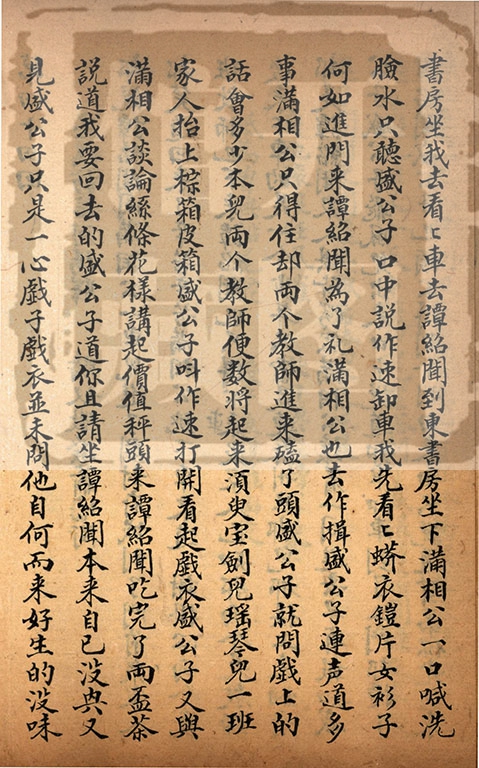 書房坐我去看〻車去譚紹聞到東書房坐下滿相公一口喊洗
臉水只聽盛公子口中説作速卸車我先看〻蟒衣鎧片女衫子
何如進門来譚紹聞為了礼滿相公也去作揖盛公子連声道多
事滿相公只得住却兩个教師進来磕了頭盛公子就問戲上的
話會多少本兒兩个教師便数將起来湏臾宝劍兒瑶琴兒一班
家人抬上棕箱皮箱盛公子呌作速打開看起戲衣盛公子又與
滿相公談論絲條花樣講起價值秤頭来譚紹聞吃完了兩盃茶
説道我要回去的盛公子道你且請坐譚紹聞本来自己没興又
見盛公子只是一心戲子戲衣並未問他自何而来好生的没味